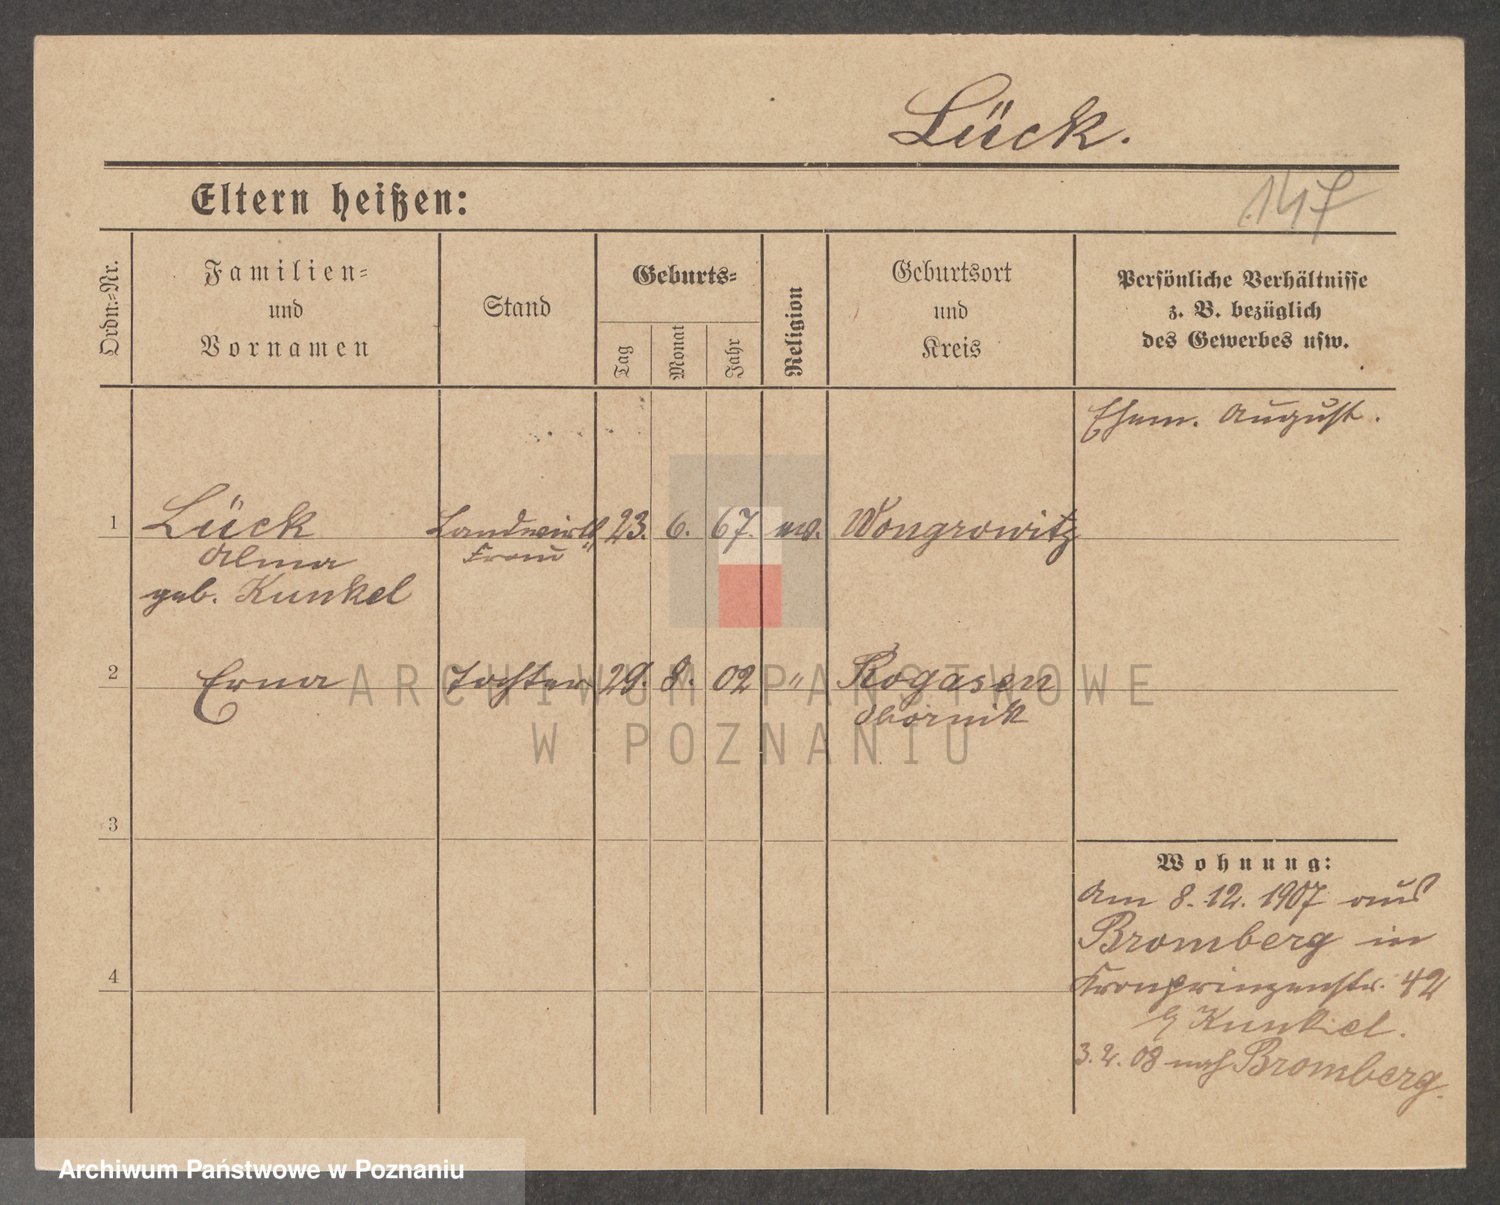 Lück.
147
Eltern heißen:
Ordn.-Nr.
Familien-
und
Vornamen
Stand
Geburts-
Tag
Monat
Jahr
Religion
Geburtsort
und
Kreis
Persönliche Verhältnisse
z. B. bezüglich
des Gewerbes usw.
Ehem. August.
1 Lück Landwirth 23. 6. 67. ev. Wongrowitz
Alma Frau
geb. Kunkel
2 Erna Tochter 29. 8. 02 " Rogasen
Obornik
3
4
Wohnung:
Am 8. 12. 1907 aus
Bromberg in
Kronprinzenstr. 42
b/ Kunkel.
3. 2. 08 nach Bromberg.
ARCHIWUM PAŃSTWOWE
W POZNANIU
Archiwum Państwowe w Poznaniu